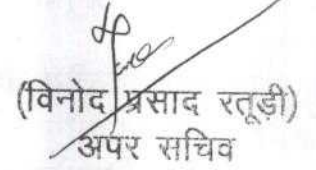 (विनोद प्रसाद रतूड़ी)
अपर सचिव